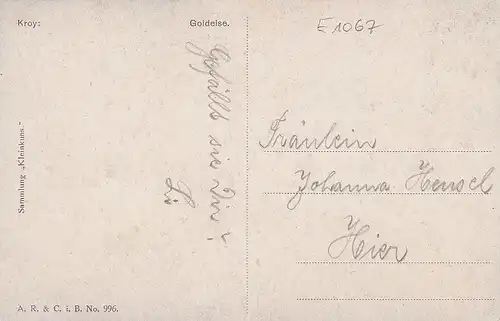 Kroy:
Goldelse.
E1067
Gefällt sie Dir?
Li
Fräulein
Johanna Hensel
Hier
Sammlung „Kleinkuns."
A. R. & C. i. B. No. 996.